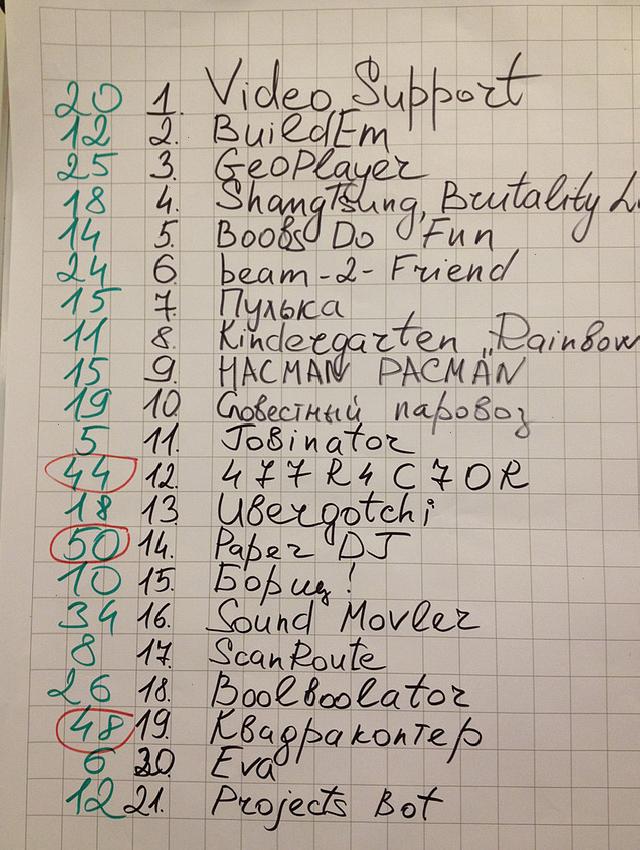 20 1. Video Support
12 2. BuildEm
25 3. GeoPlayer
18 4. ShangTsung, Brutality
14 5. Boobs Do Fun
24 6. beam-2-Friend
15 7. Пулька
11 8. Kindergarten „Rainbow
15 9. HACMAN PACMAN
19 10. Словестный паровоз
5 11. Jobinator
44 12. 477R4C7OR
18 13 Ubergotchi
50 14. Paper DJ
10 15. Борщ!
34 16. Sound Movler
8 17. ScanRoute
26 18. Boolboolator
48 19. Квадракоптер
6 20 Eva
12 21. Projects Bot